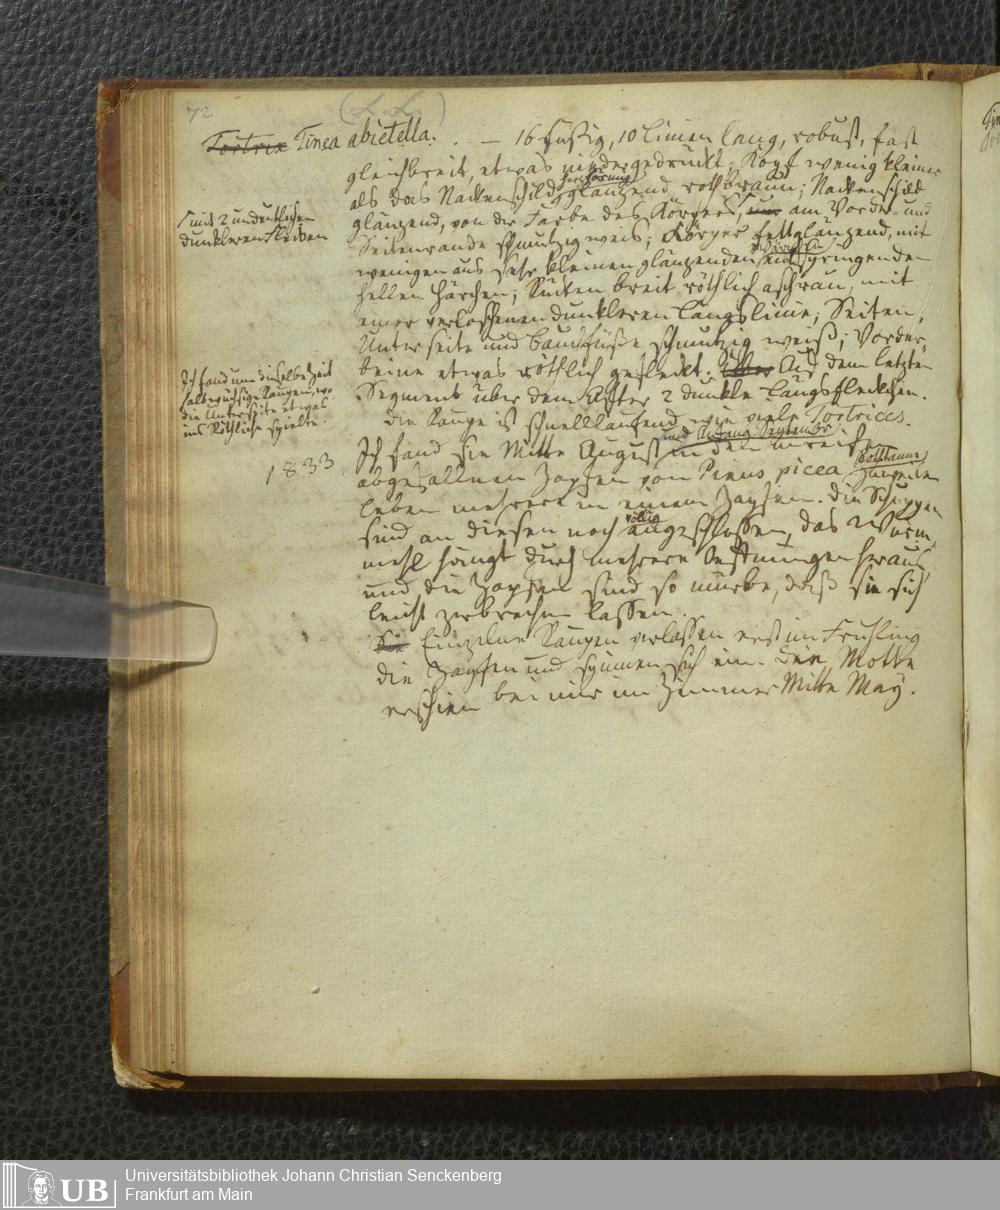 72
Tortrix Tinea abietella. . . — 16 füßig, 10 Linien lang, robust, fast
gleichbreit, etwas niedergedrückt; Kopf wenig kleiner
als das Nackenschild, glänzend rothbraun; Nackenschild
glänzend, von der Farbe des Körpers, nur am Vorder- und
Γ mit 2 undeutlichen
dunkleren Flecken
Seitenrande schmutzig weis; Körper fettglänzend, mit
wenigen aus sehr kleinen glänzenden Wärzchen entspringenden
hellen Härchen; Rücken breit röthlich aschgrau, mit
einer verloschenen dunkleren Längslinie; Seiten,
Unterseite und Bauchfüße schmutzig weiß; Vorder-
beine etwas röthlich gefleckt. Auf dem letzten
Segment über dem After 2 dunkle Längsfleckchen.
Die Raupe ist schnelllaufend wie viele Tortrices.
Ich fand um dieselbe Zeit
halbwüchsige Raupen, wo
die Unterseite etwas
ins Röthliche spielte.
1833.
Ich fand sie Mitte August und Anfang September in den unreif
abgefallnen Zapfen von Pinus picea (Rothtanne)
leben mehrere in einem Zapfen. Die Schuppen
sind an diesen noch völlig angeschlossen, das Wurm-
mehl hängt durch mehrere Oeffnungen heraus
und die Zapfen sind so mürbe, daß sie sich
leicht zerbrechen lassen.
Sie Einzelne Raupen verlassen erst im Frühling
die Zapfen und spinnen sich ein. Die Motte
erschien bei mir im Zimmer Mitte May.
UB
Universitätsbibliothek Johann Christian Senckenberg
Frankfurt am Main